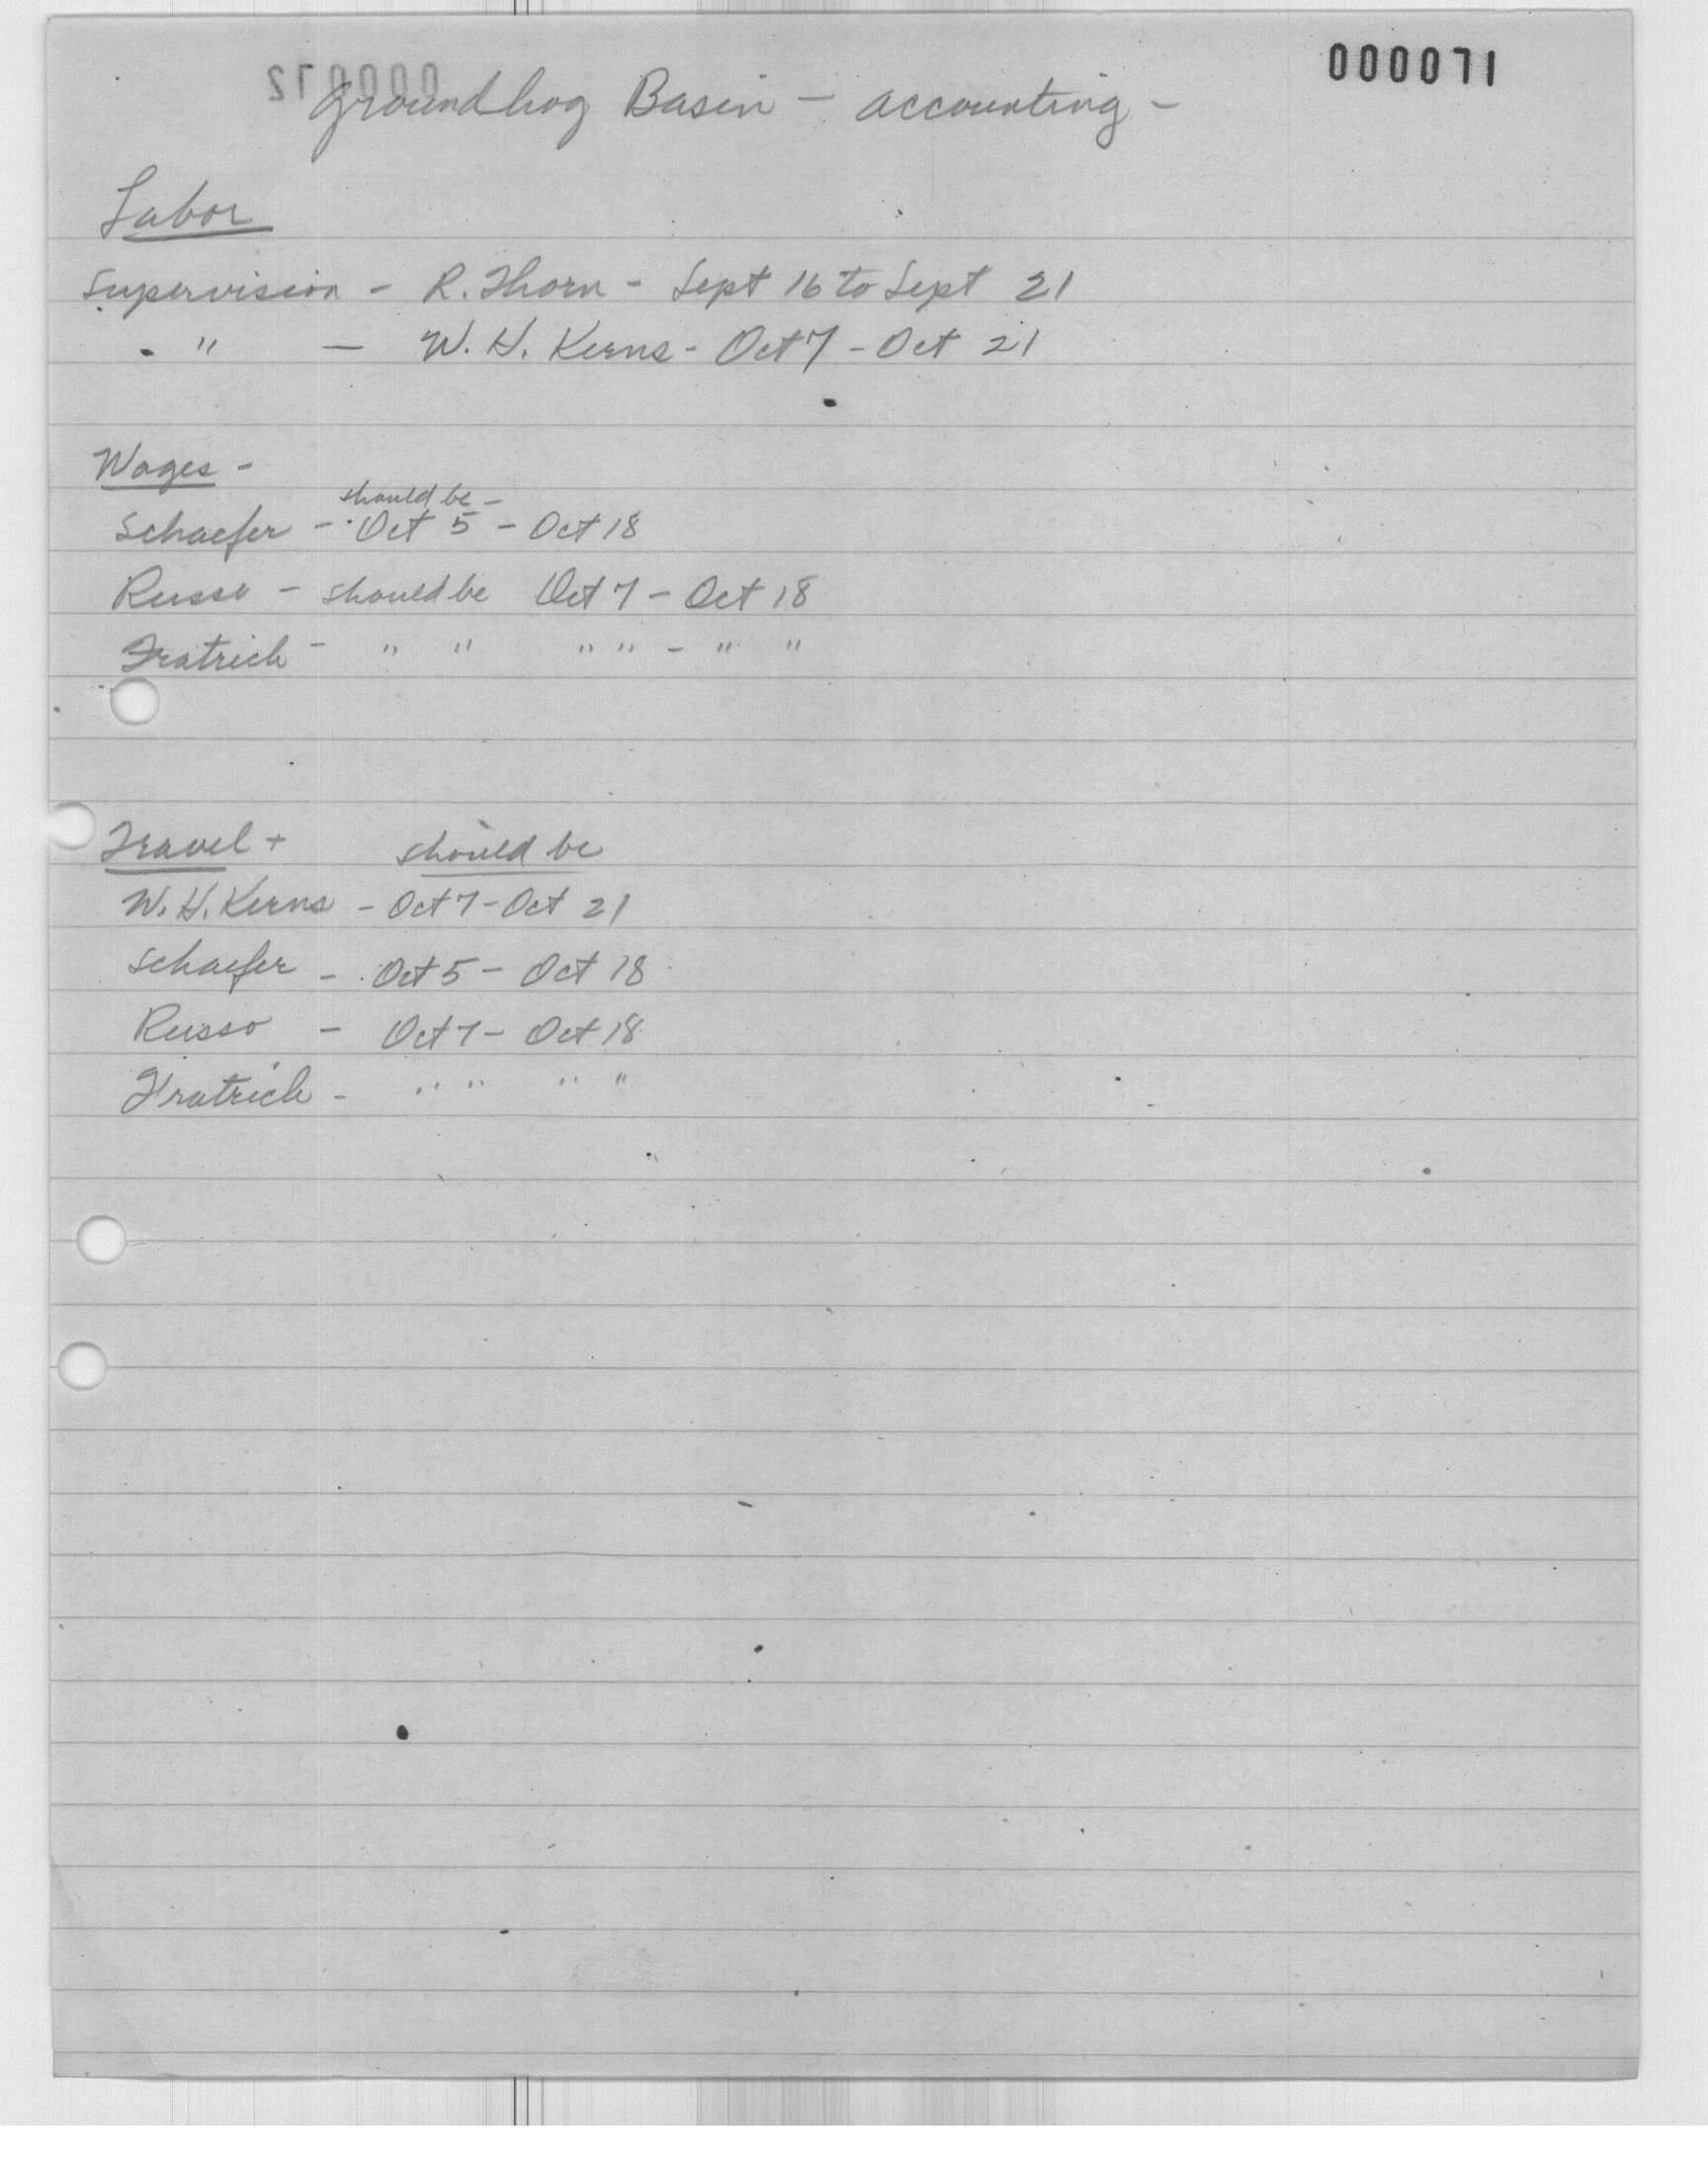 000071
Groundhog Basin - accounting -
Labor
Supervision - R. Thorn - Sept 16 to Sept 21
" - W. H. Kerns - Oct 7 - Oct 21
Wages -
should be -
Schaefer - Oct 5 - Oct 18
Russo - should be Oct 7 - Oct 18
Fratrich - " " " " - " "
Travel + should be
W. H. Kerns - Oct 7 - Oct 21
Schaefer - Oct 5 - Oct 18
Russo - Oct 7 - Oct 18
Fratrich - " " " "